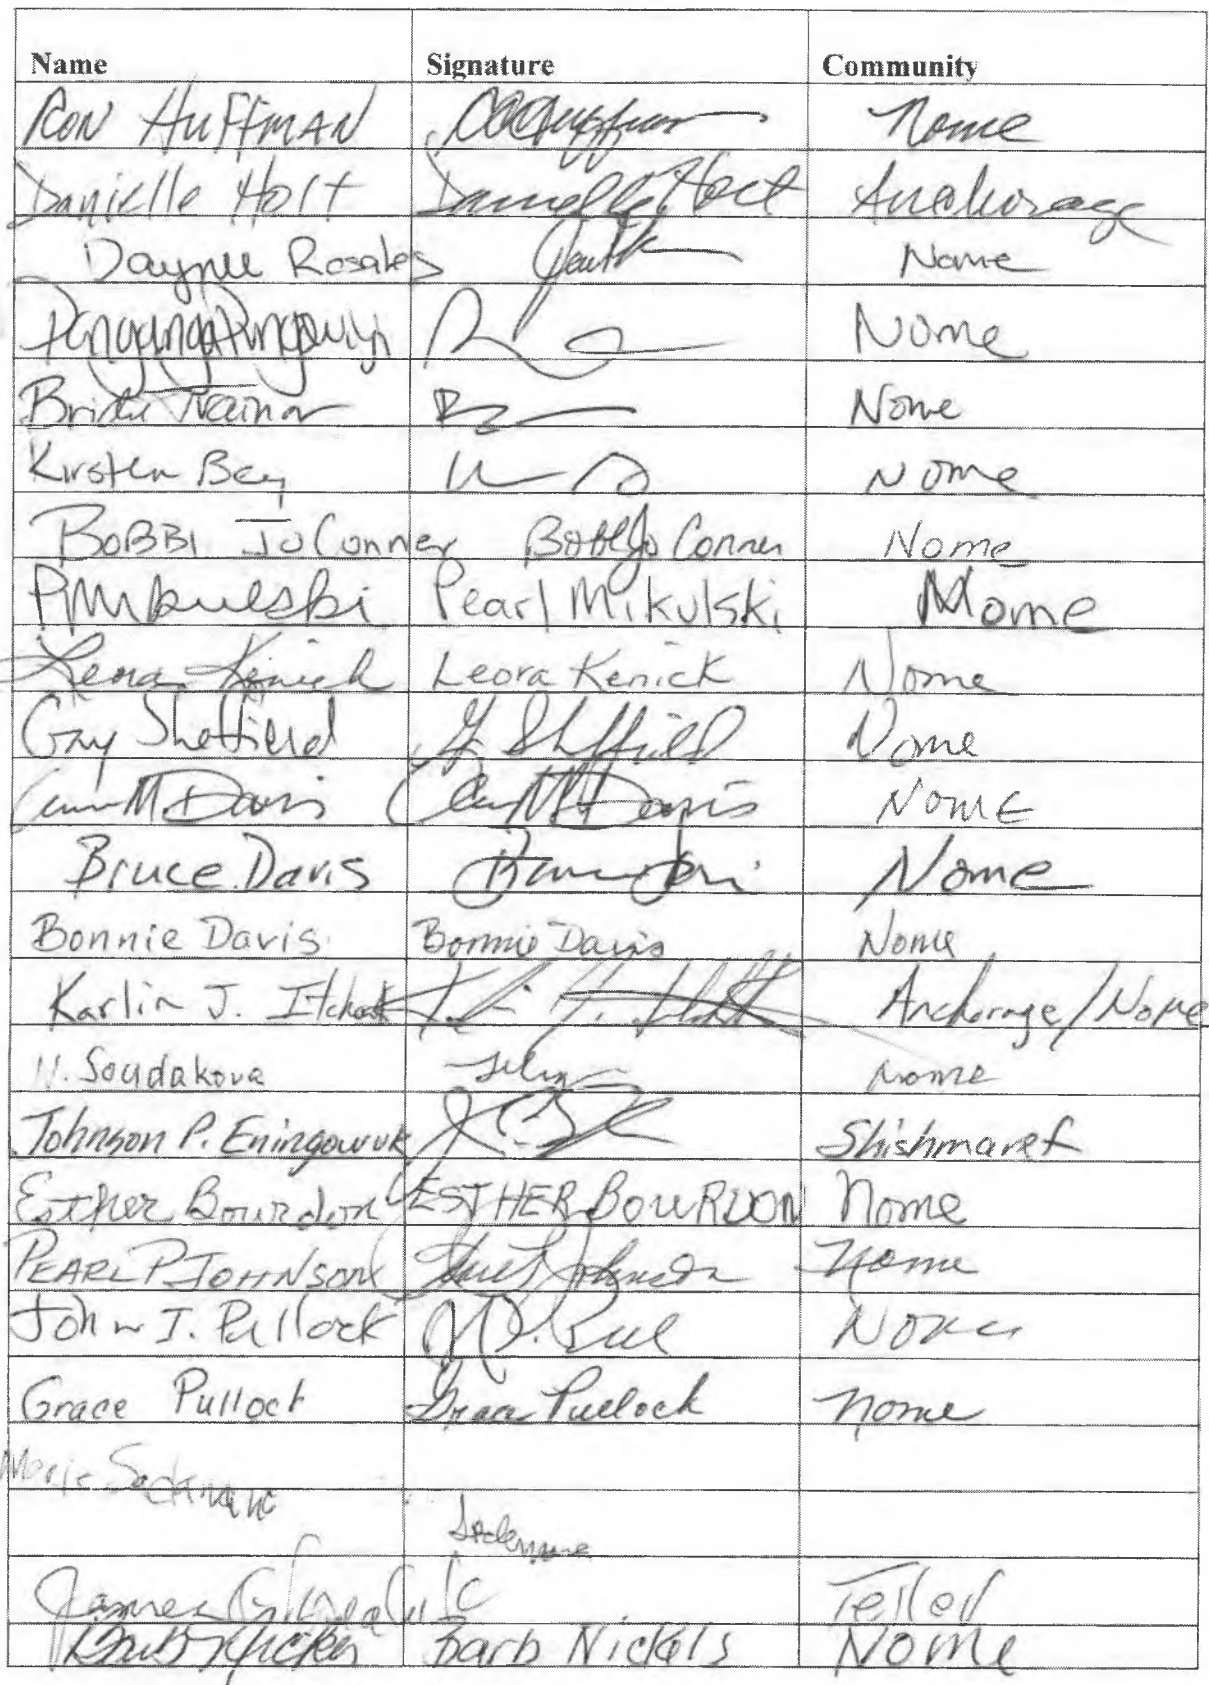 Name Signature Community
Ron Huffman Nome
Danielle Holt Danielle Holt Anchorage
Daynee Rosales Nome
Nome
Bridie Trainor Nome
Kirsten Bey Nome
BOBBI Jo Conner Bobbi Jo Conner Nome
PMikulski Pearl Mikulski Nome
Leora Kenick Leora Kenick Nome
Gay Sheffield G Sheffield Nome
M Davis M Davis NomE
Bruce Davis Nome
Bonnie Davis Bonnie Davis Nome
Karlin J. Itchoak Anchorage/Nome
N. Soudakova Nome
Johnson P. Eningowuk Shishmaref
Esther Bourdon ESTHER BOURDON Nome
PEARL P JOHNSON Johnson Nome
John J. Pullock Nome
Grace Pullock Grace Pullock Nome
James Teller
Barb Nickels Barb Nickels Nome